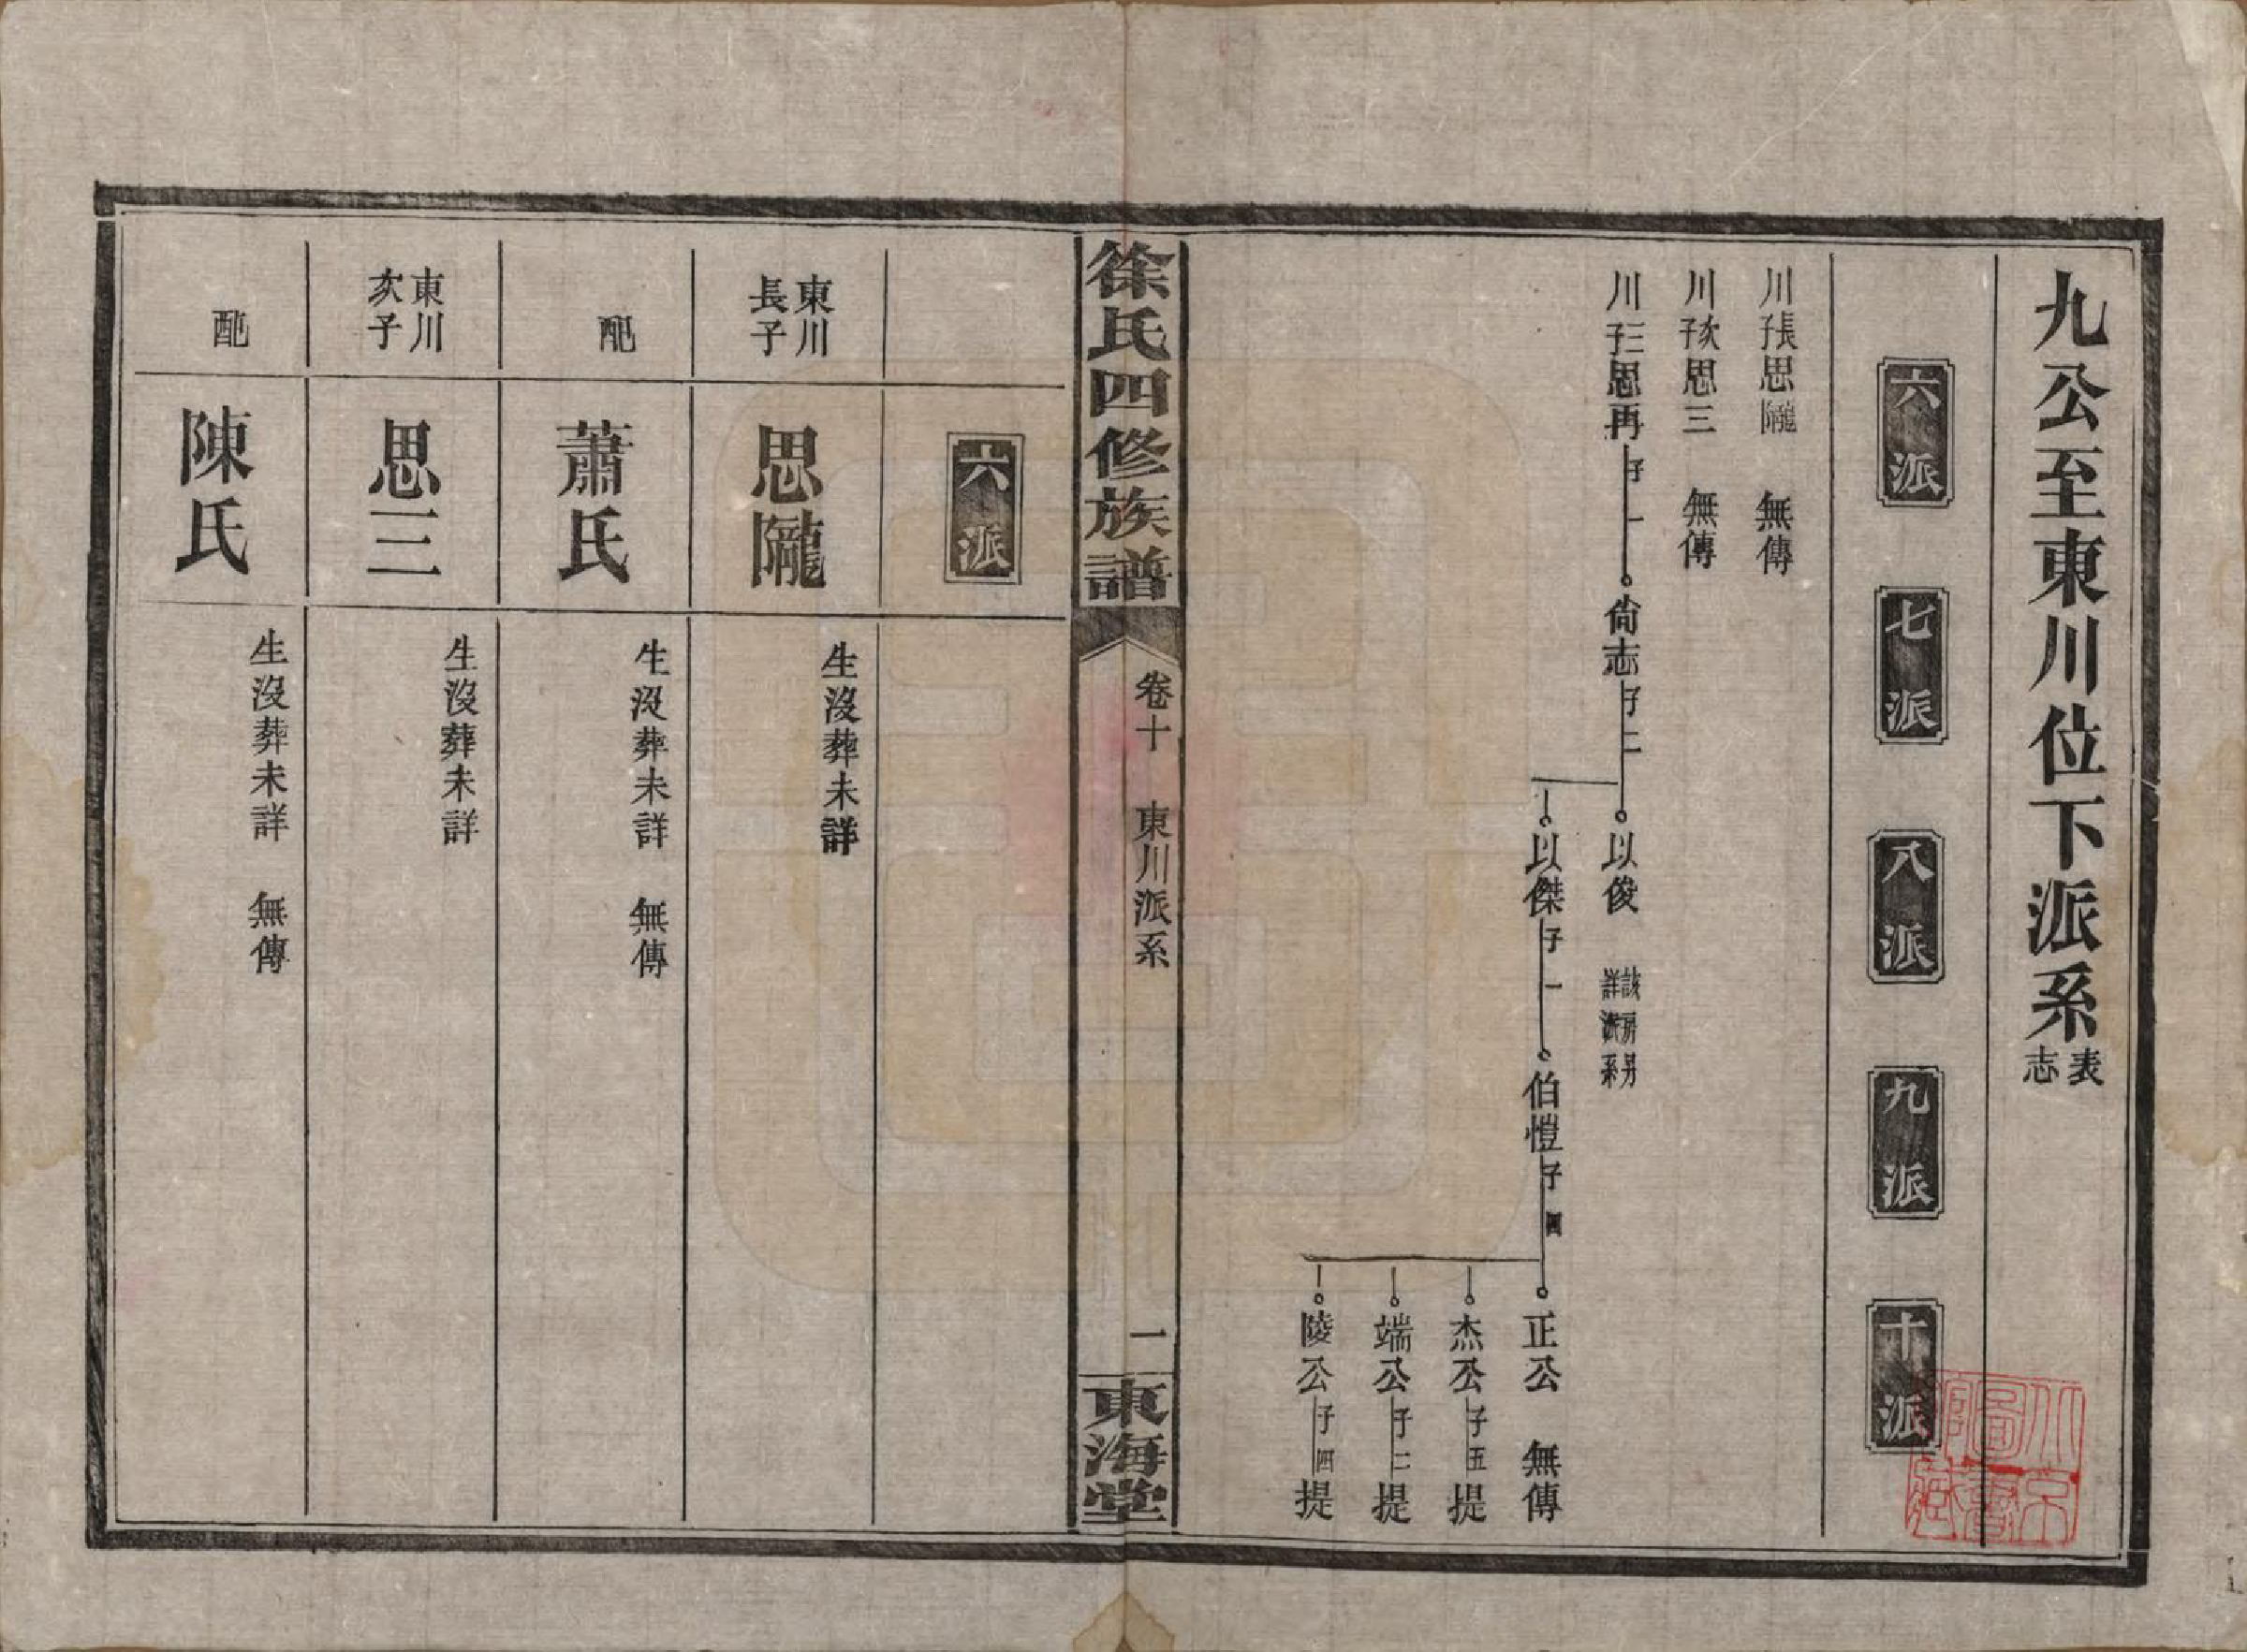 九公至東川位下派系表志
六派
七派
八派
九派
十派
川長子思隴 無傳
川次子思三 無傳
川三子思再 子一 尙志 子二 以俊 該房另詳派系
以傑 子一 伯愷 子四 正公 無傳
杰公 子五 提
端公 子二 提
陵公 子四 提
徐氏四修族譜
卷十 東川派系
一
東海堂
六派
東川長子 思隴 生沒葬未詳
配 蕭氏 生沒葬未詳 無傳
東川次子 思三 生沒葬未詳
配 陳氏 生沒葬未詳 無傳